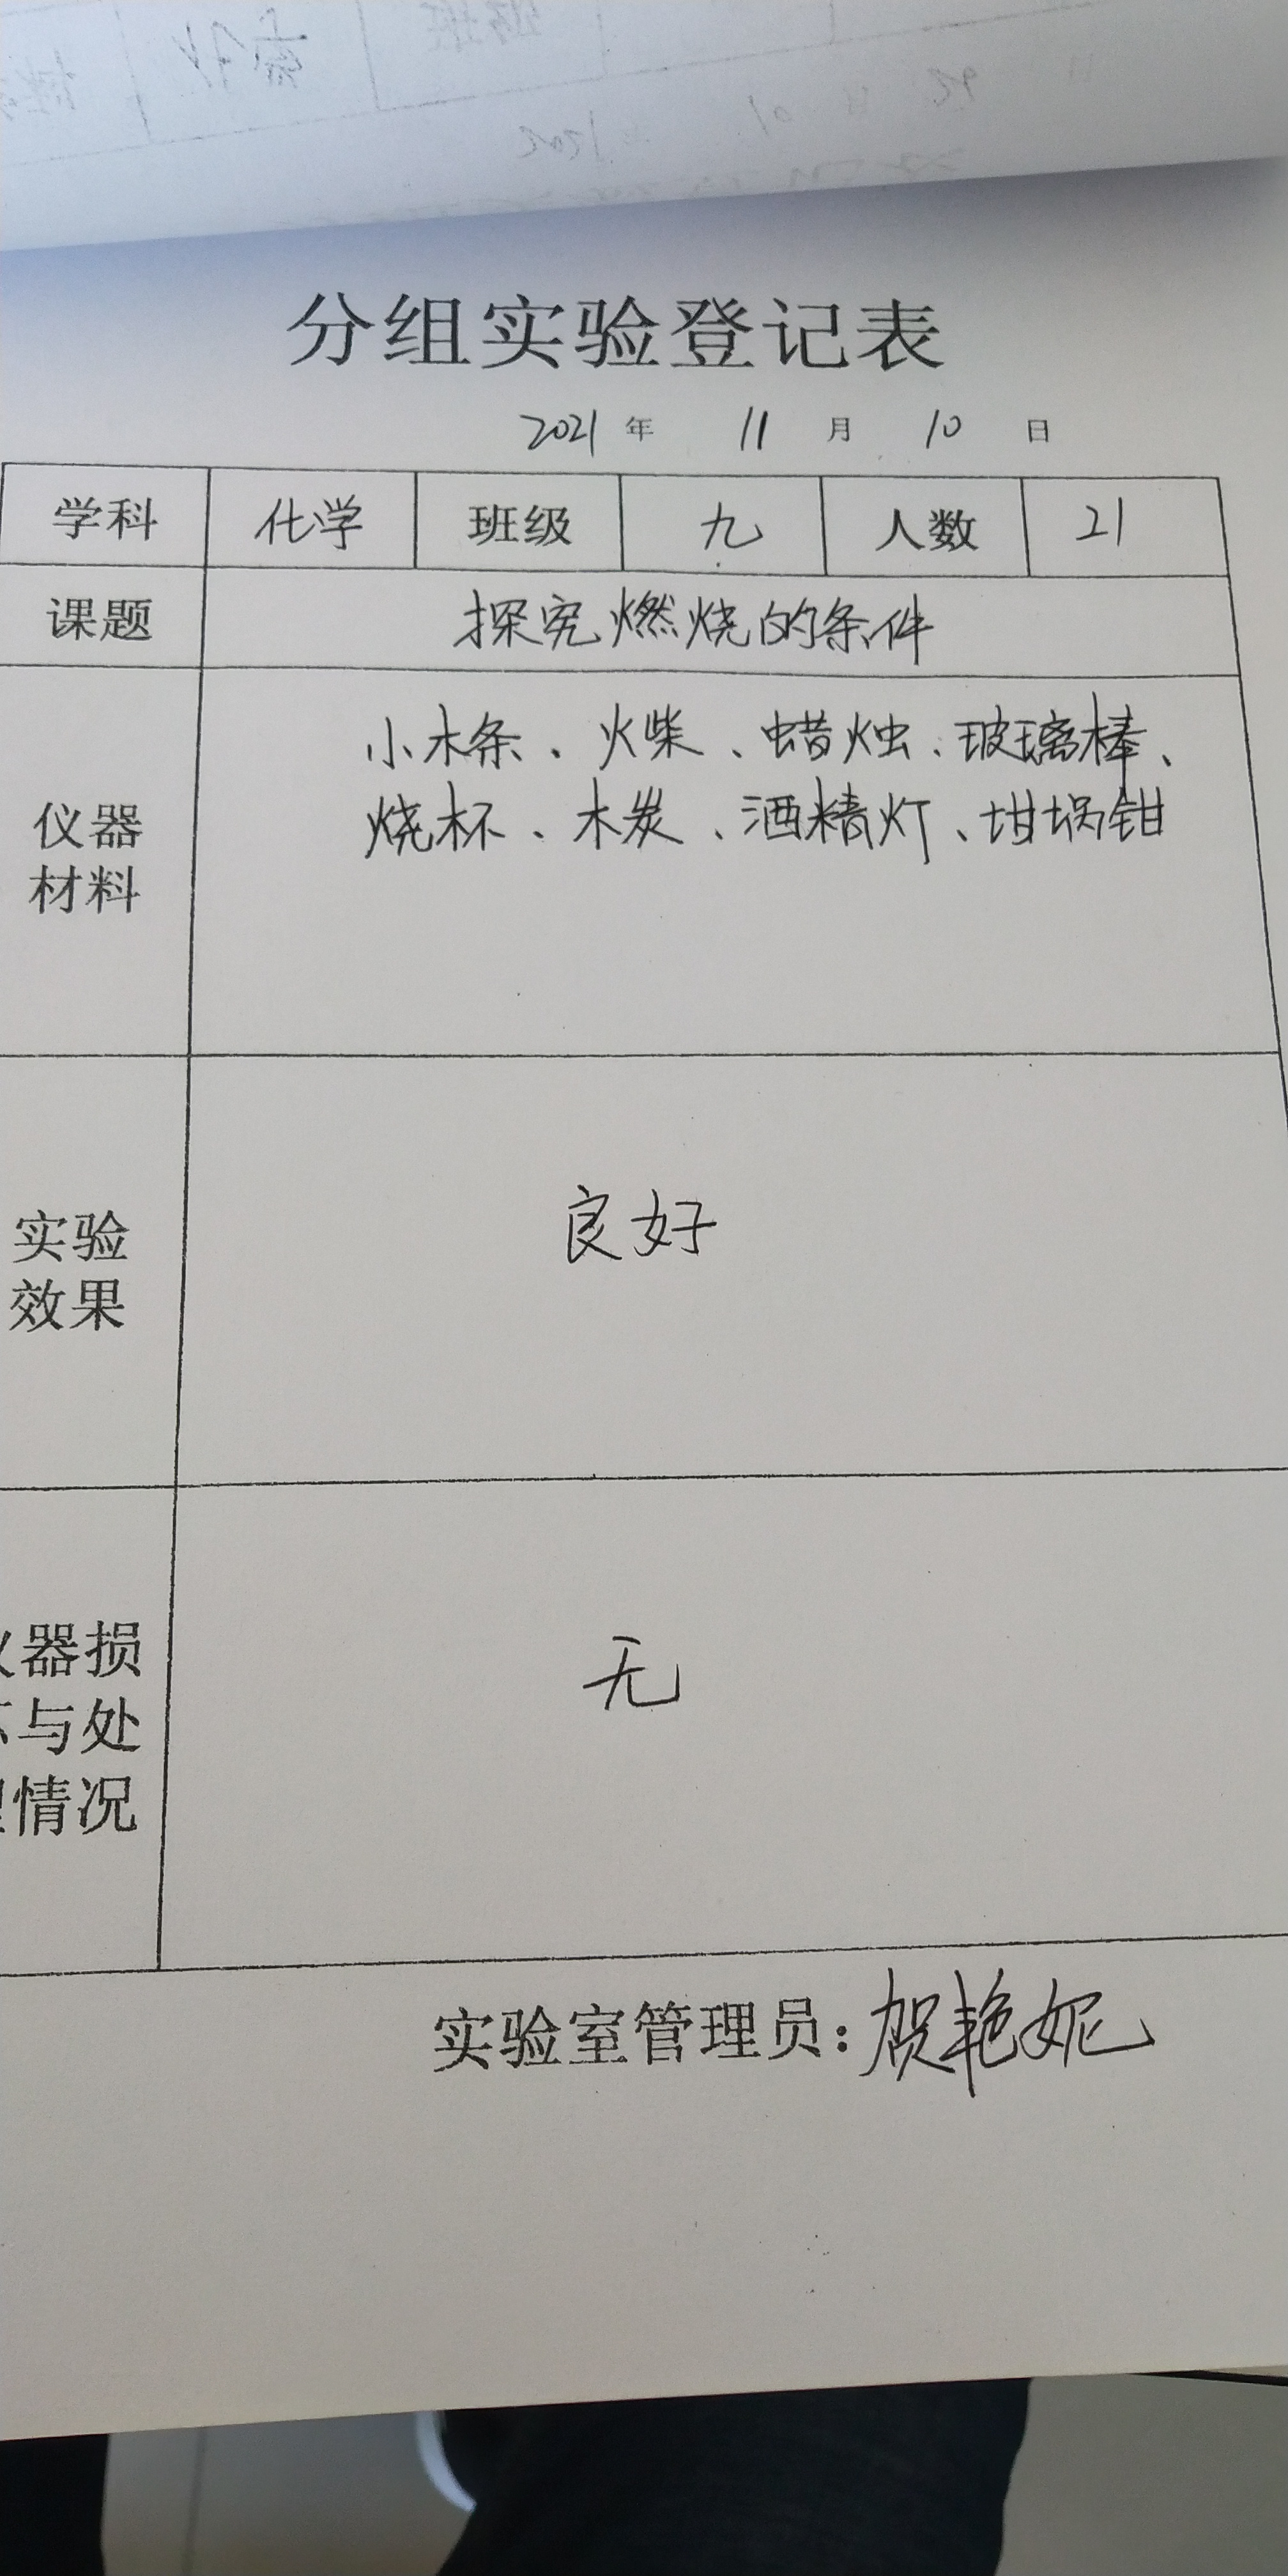 分组实验登记表
2021 年 11 月 10 日
学科 化学 班级 九 人数 21
课题 探究燃烧的条件
仪器
材料
小木条、火柴、蜡烛、玻璃棒、
烧杯、木炭、酒精灯、坩埚钳
实验
效果
良好
器损
与处
情况
无
实验室管理员：贺艳妮